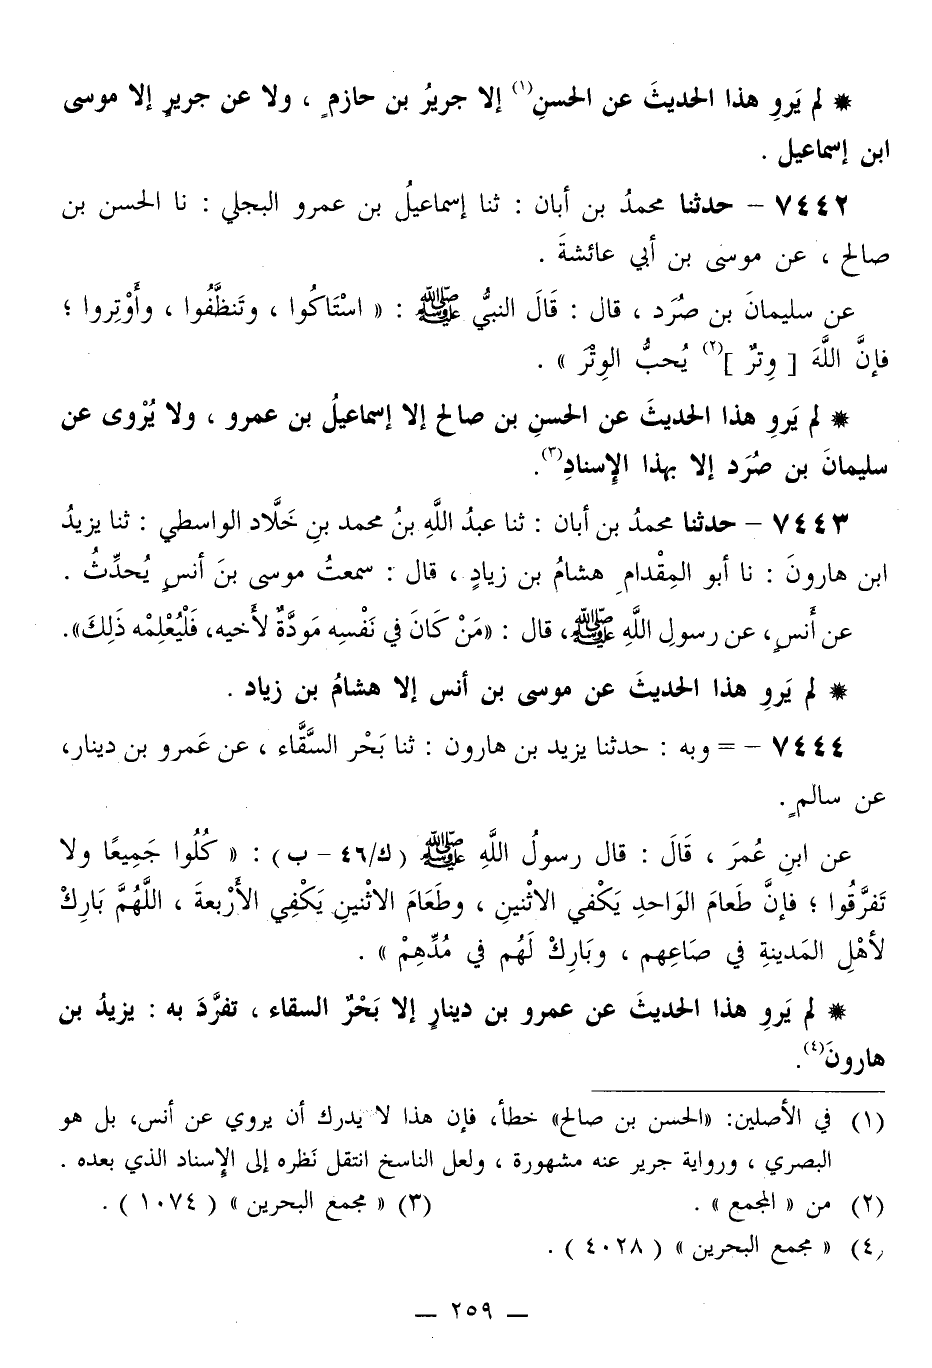 * لم يَروِ هذا الحديثَ عن الحسنِ(١) إلا جريرُ بن حازمٍ ، ولا عن جريرٍ إلا موسى
ابن إسماعيل .
٧٤٤٢ – حدثنا محمدُ بن أبان : ثنا إسماعيلُ بن عمرو البجلي : نا الحسن بن
صالح ، عن موسى بن أبي عائشةَ .
عن سليمانَ بن صُرَد ، قال : قَالَ النبيُّ ﷺ : « اسْتَاكُوا ، وتَنظَّفُوا ، وأَوْتِروا ؛
فإنَّ اللَّهَ [ وِترٌ ](٢) يُحبُّ الوِتْرَ » .
* لم يَروِ هذا الحديثَ عن الحسنِ بن صالح إلا إسماعيلُ بن عمرو ، ولا يُرْوى عن
سليمانَ بن صُرَد إلا بهذا الإسنادِ(٣).
٧٤٤٣ – حدثنا محمدُ بن أبان : ثنا عبدُ اللَّهِ بنُ محمد بنِ خَلَّاد الواسطي : ثنا يزيدُ
ابن هارونَ : نا أبو المِقْدامِ هشامُ بن زيادٍ ، قال : سمعتُ موسى بنَ أنسٍ يُحدِّثُ .
عن أَنسٍ، عن رسولِ اللَّهِ ﷺ، قال : «مَنْ كَانَ في نَفْسِه مَودَّةٌ لأخيه، فَلْيُعْلِمْه ذَلِكَ».
* لم يَروِ هذا الحديثَ عن موسى بن أنس إلا هشامُ بن زياد .
٧٤٤٤ – = وبه : حدثنا يزيد بن هارون : ثنا بَحْر السَّقَّاء ، عن عَمرو بن دينار،
عن سالمٍ .
عن ابنِ عُمرَ ، قَالَ : قال رسولُ اللَّهِ ﷺ ( ك/٤٦ – ب ) : « كُلُوا جَمِيعًا ولا
تَفرَّقُوا ؛ فإنَّ طَعامَ الوَاحدِ يَكْفي الاثْنينِ ، وطَعَامَ الاثْنينِ يَكْفِي الأَرْبعةَ ، اللَّهُمَّ بَارِكْ
لأهْلِ المَدينةِ في صَاعِهم ، وبَارِكْ لَهُم في مُدِّهِمْ » .
* لم يَروِ هذا الحديثَ عن عمرو بن دينارٍ إلا بَحْرٌ السقاء ، تفرَّدَ به : يزيدُ بن
هارونَ(٤).
(١) في الأصلين: «الحسن بن صالح» خطأ، فإن هذا لا يدرك أن يروي عن أنس، بل هو
البصري ، ورواية جرير عنه مشهورة ، ولعل الناسخ انتقل نَظره إلى الإسناد الذي بعده .
(٢) من « المجمع » . (٣) « مجمع البحرين » ( ١٠٧٤ ) .
(٤) « مجمع البحرين » ( ٤٠٢٨ ) .
— ٢٥٩ —